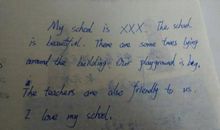 My school is XXX. The school
is beautiful. There are some trees lying
around the building. Our playground is big.
The teachers are also friendly to us.
I love my school.